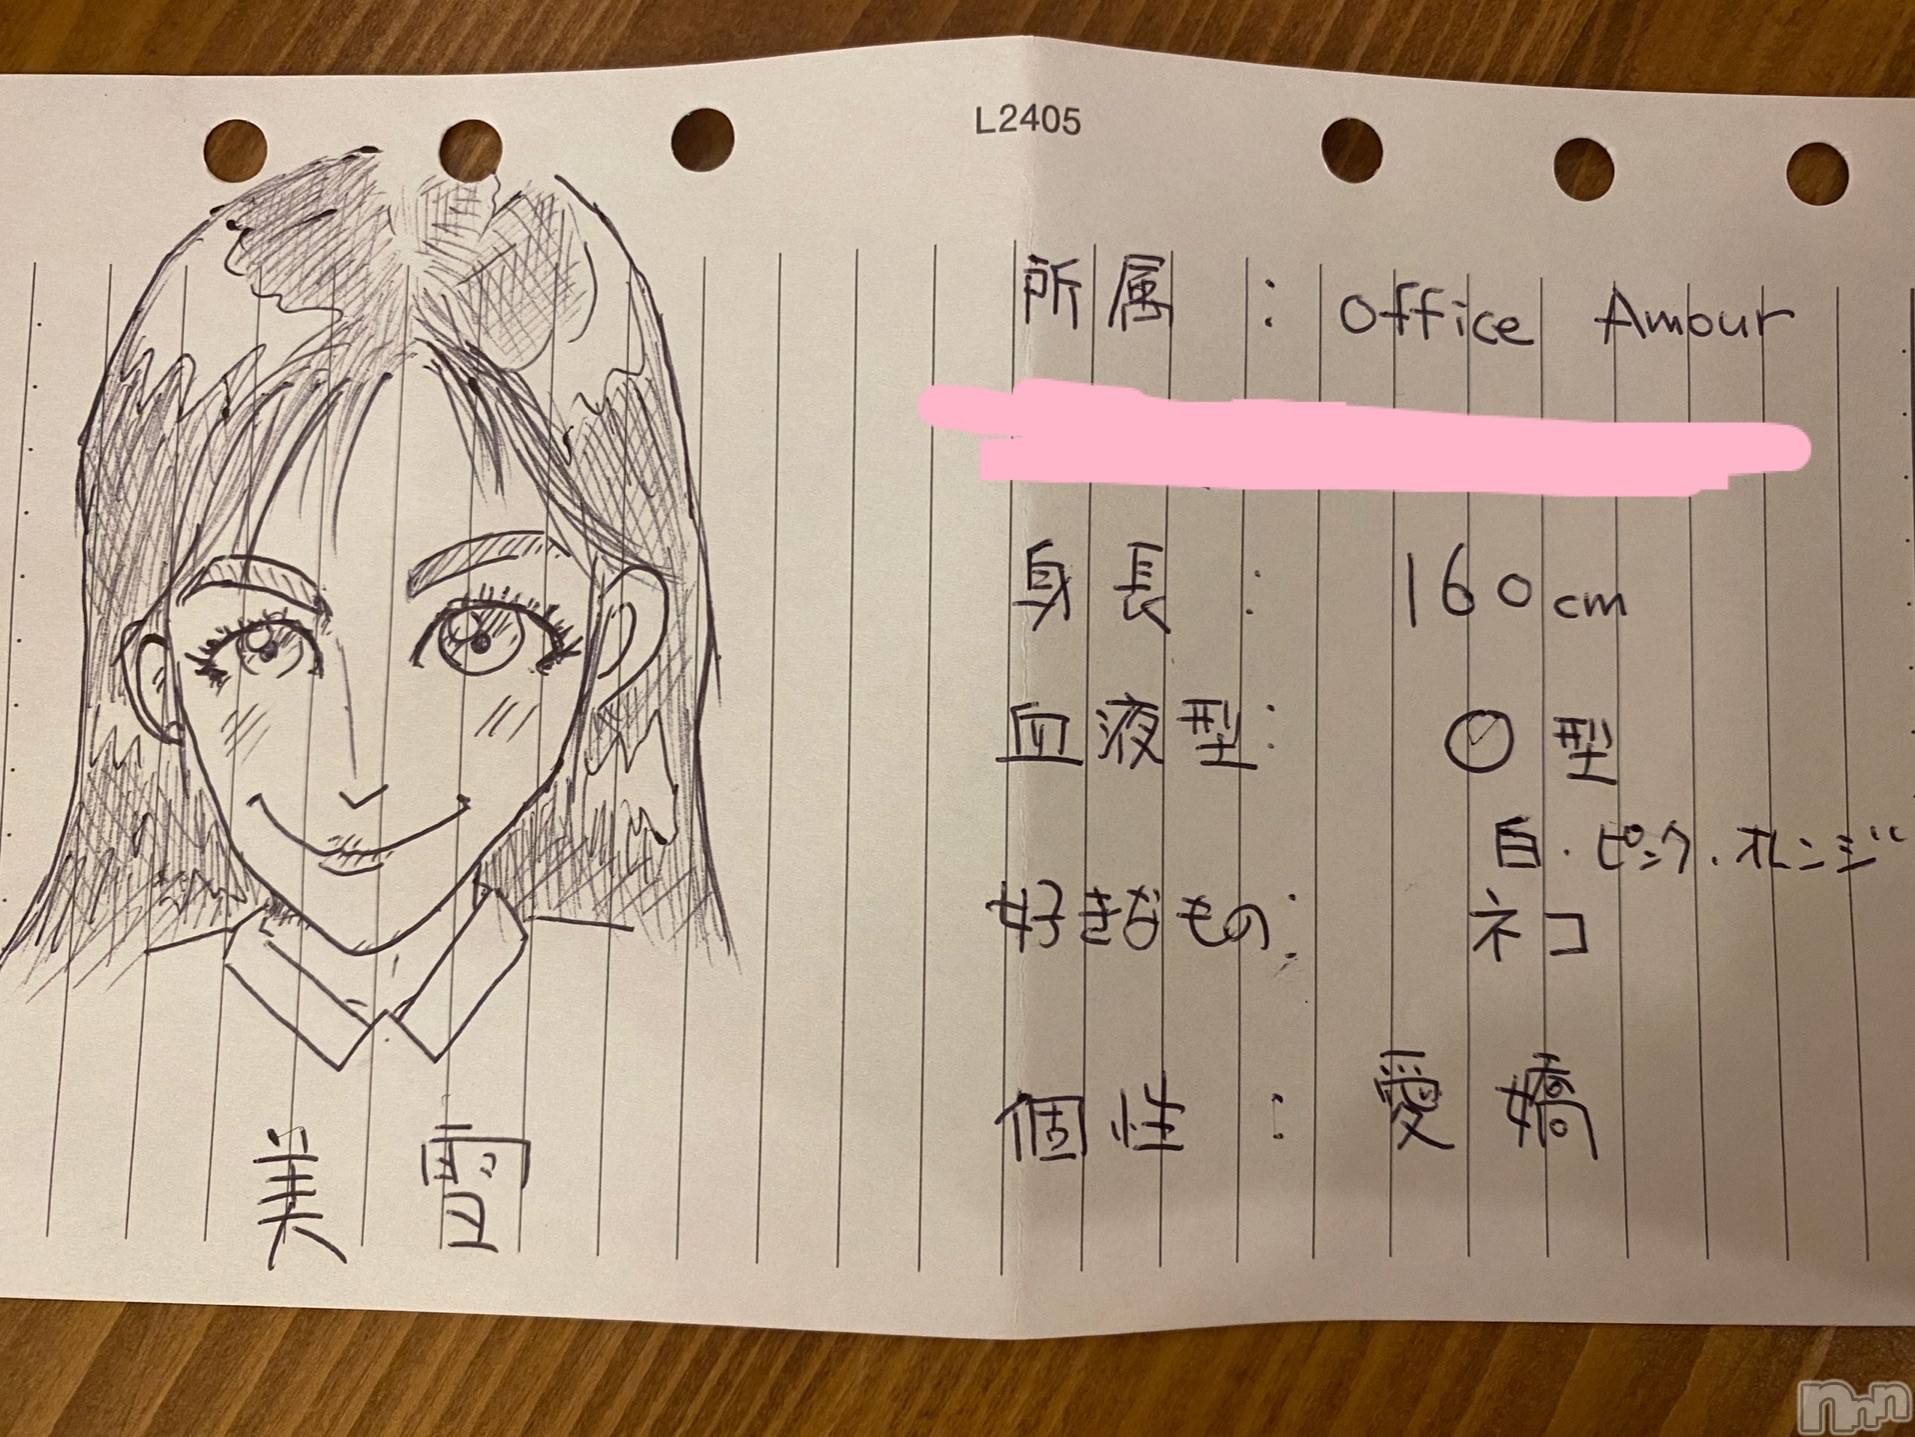 L2405
所属：office Amour
身長：160cm
血液型：O型
白・ピンク・オレンジ
好きなもの：ネコ
個性：愛嬌
美雪
nnn